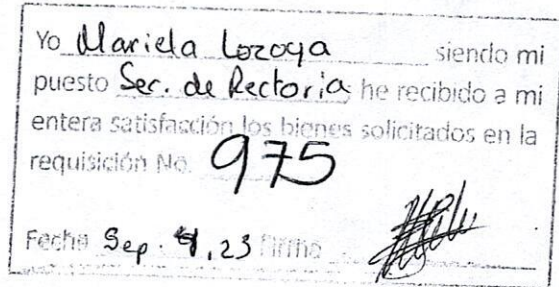 Yo Mariela Lozoya siendo mi
puesto Sec. de Rectoria he recibido a mi
entera satisfacción los bienes solicitados en la
requisición No. 975
Fecha Sep. , 23 Firma